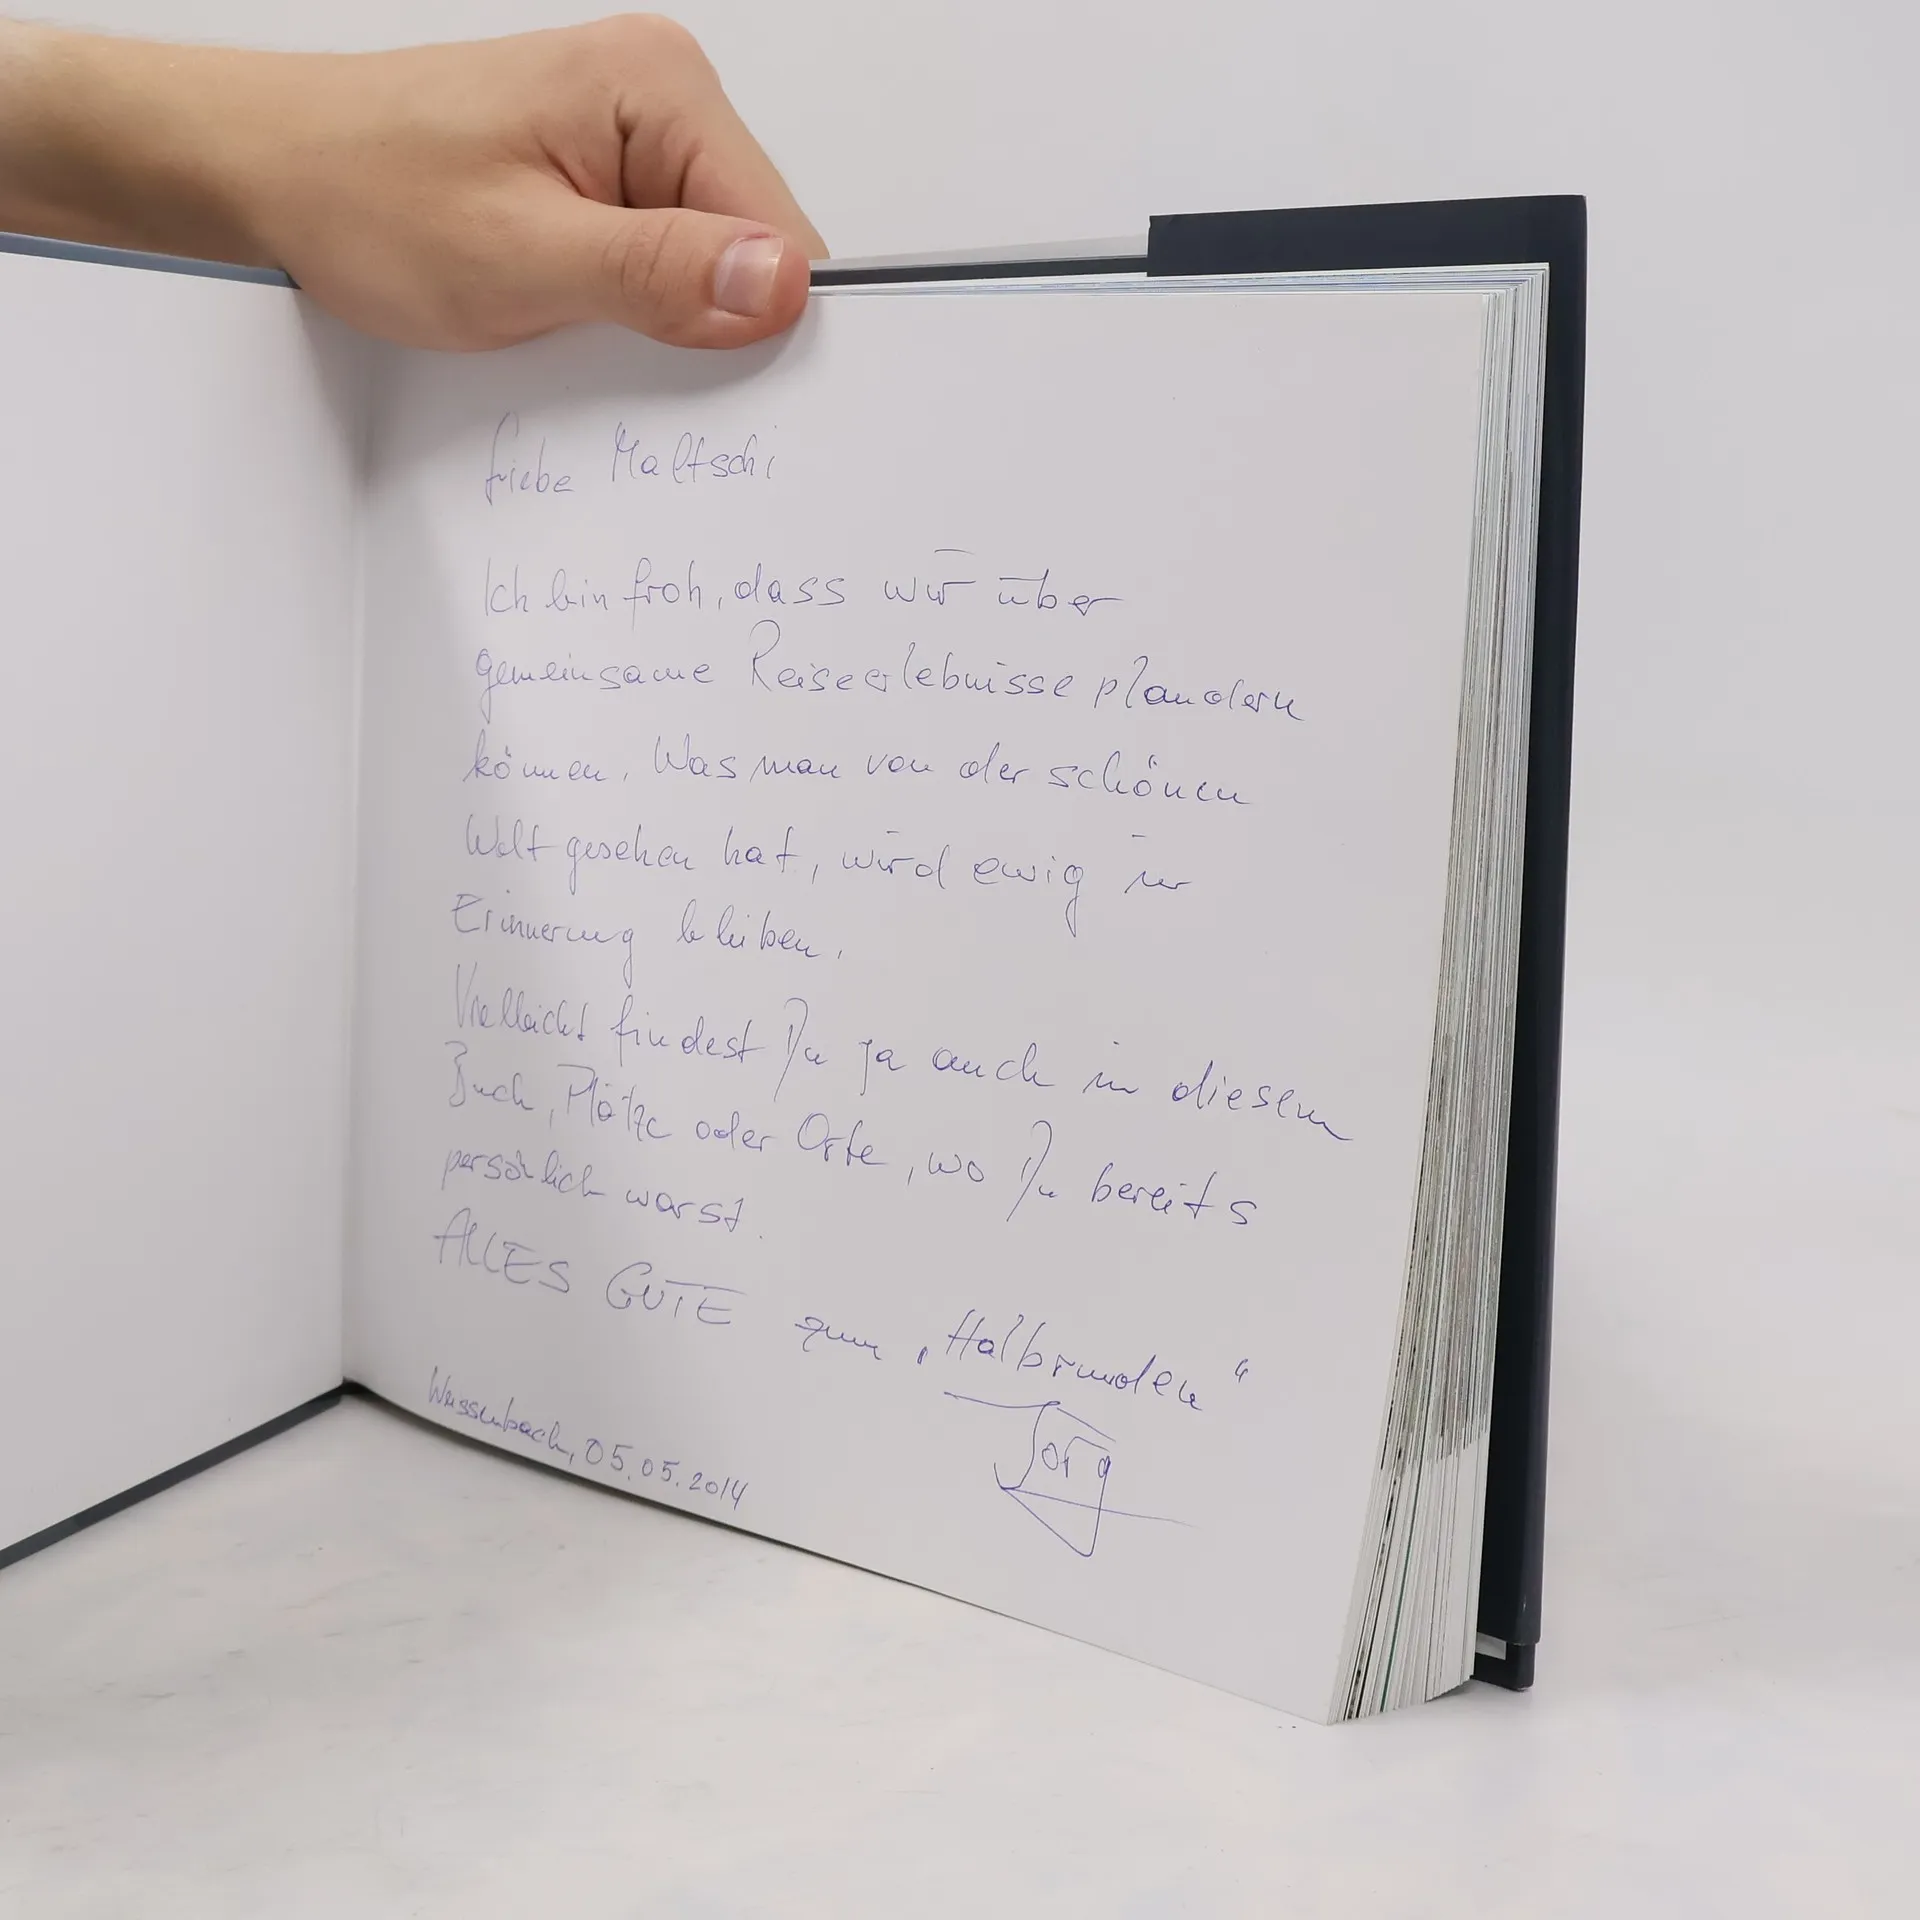 Liebe Maltschi
Ich bin froh, dass wir über
gemeinsame Reiseerlebnisse plaudern
können. Was man von der schönen
Welt gesehen hat, wird ewig in
Erinnerung bleiben.
Vielleicht findest Du ja auch in diesem
Buch, Plätze oder Orte, wo Du bereits
persönlich warst.
ALLES GUTE zum „Halbrunden“
Weissenbach, 05.05.2014